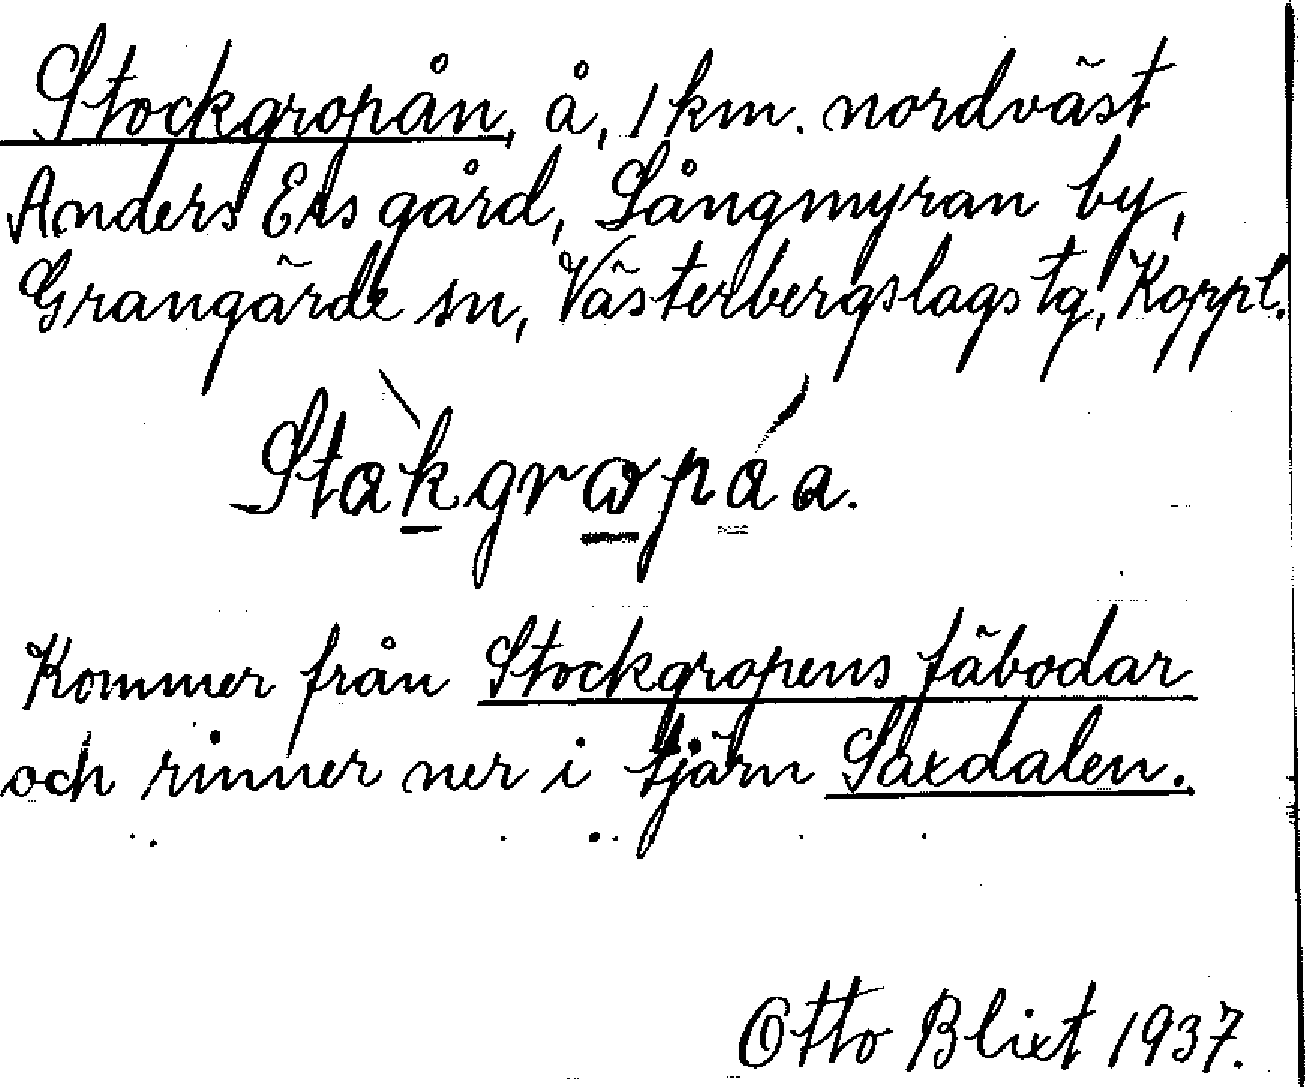 Stockgropån, å, 1 km. nordväst
Anders Ers gård, Långmyran by,
Grangärde sn, Västerbergslags tg, Koppl.
Stakgrωpáa.
Kommer från Stockgropens fäbodar
och rinner ner i tjärn Saxdalen.
Otto Blixt 1937.